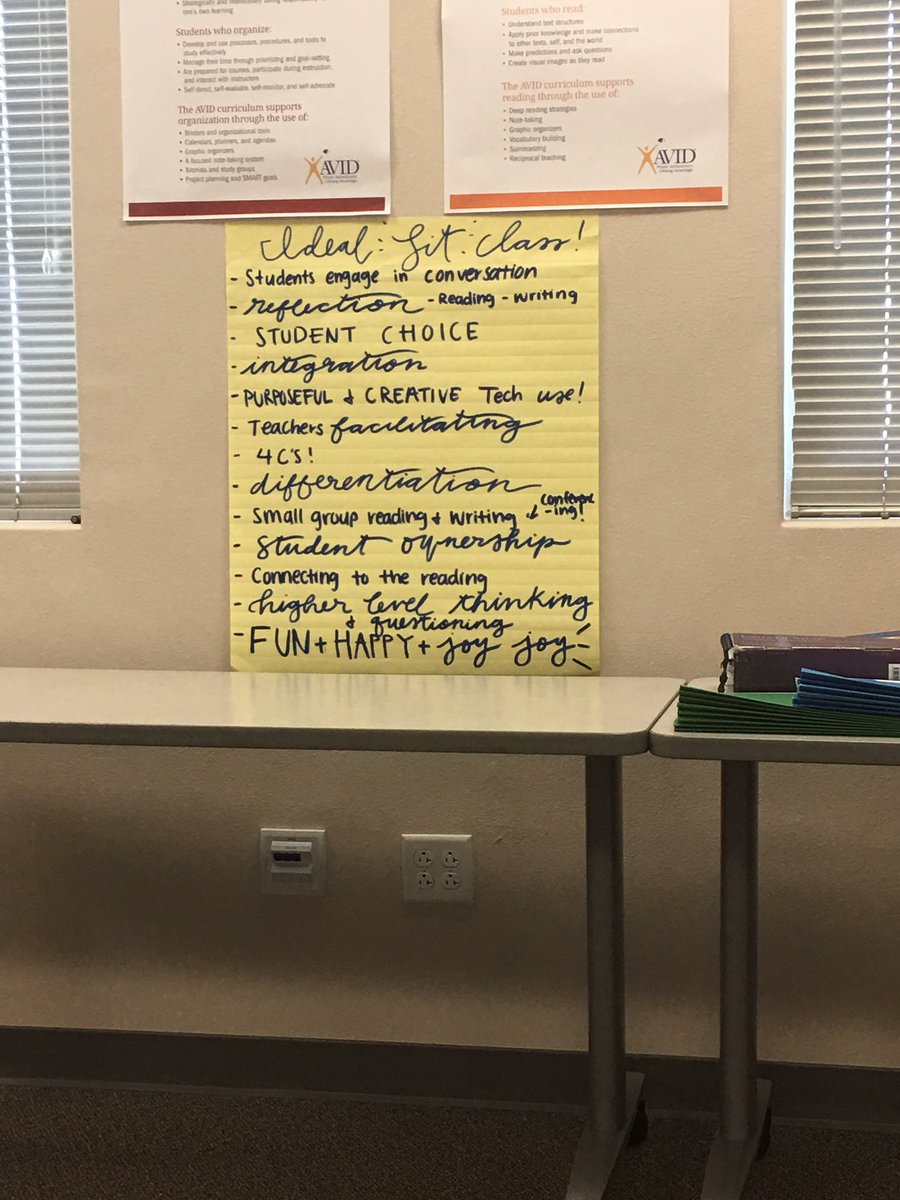 one's own learning
Students who organize:
• Develop and use processes, procedures, and tools to
study effectively
• Manage their time through prioritizing and goal-setting
• Are prepared for courses, participate during instruction,
and interact with instructors
• Self-direct, self-evaluate, self-monitor, and self-advocate
The AVID curriculum supports
organization through the use of:
• Binders and organizational tools
• Calendars, planners, and agendas
• Graphic organizers
• A focused note-taking system
• Tutorials and study groups
• Project planning and SMART goals
AVID
Students who read:
• Understand text structures
• Apply prior knowledge and make connections
to other texts, self, and the world
• Make predictions and ask questions
• Create visual images as they read
The AVID curriculum supports
reading through the use of:
• Deep reading strategies
• Note-taking
• Graphic organizers
• Vocabulary building
• Summarizing
• Reciprocal teaching
AVID
Ideal Lit Class!
- Students engage in conversation
- reflection - Reading - Writing
- STUDENT CHOICE
- integration
- PURPOSEFUL & CREATIVE Tech use!
- Teachers facilitating
- 4 C's!
- differentiation
- Small group reading & writing & conferenc-ing!
- Student ownership
- Connecting to the reading
- higher level thinking
& questioning
- FUN + HAPPY + joy joy